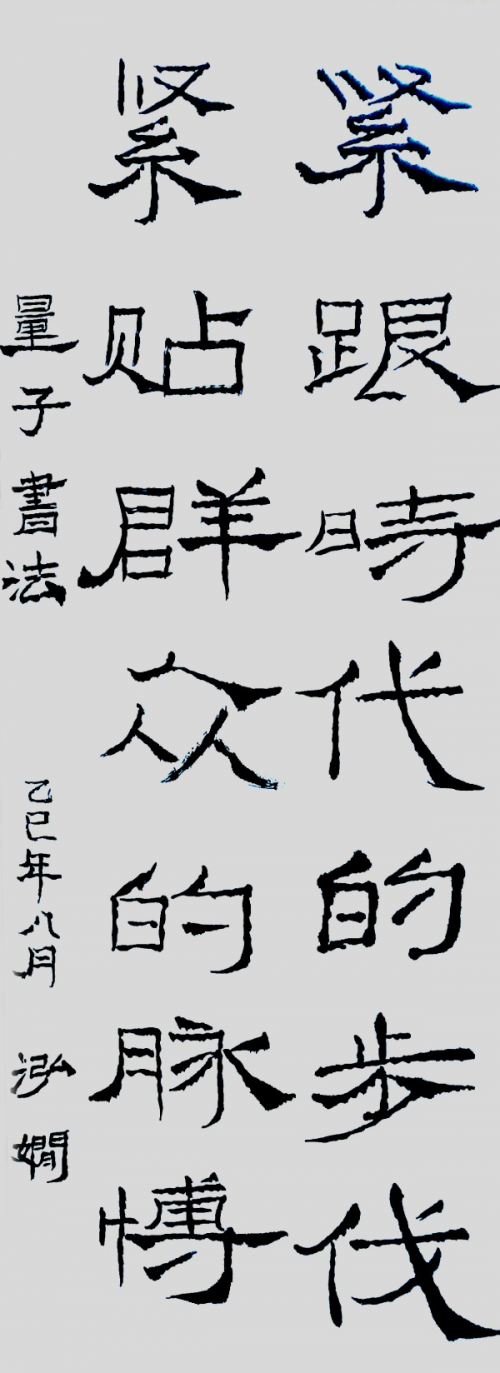 紧跟時代的步伐
紧贴群众的脉愽
量子書法
乙巳年八月 泓嫺